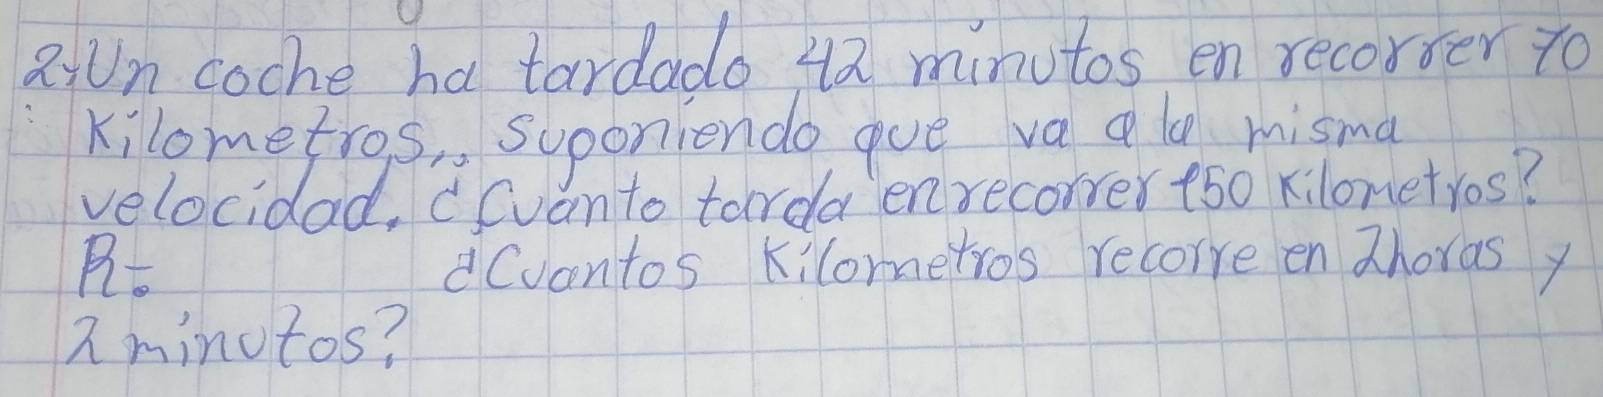 2. Un coche ha tardado 42 minutos en recorrer 70
Kilometros... suponiendo que va a la misma
velocidad. ¿Cuánto tarda en recorrer 150 Kilometros?
R= ¿Cuantos Kilometros recorre en 2horas y
2 minutos?